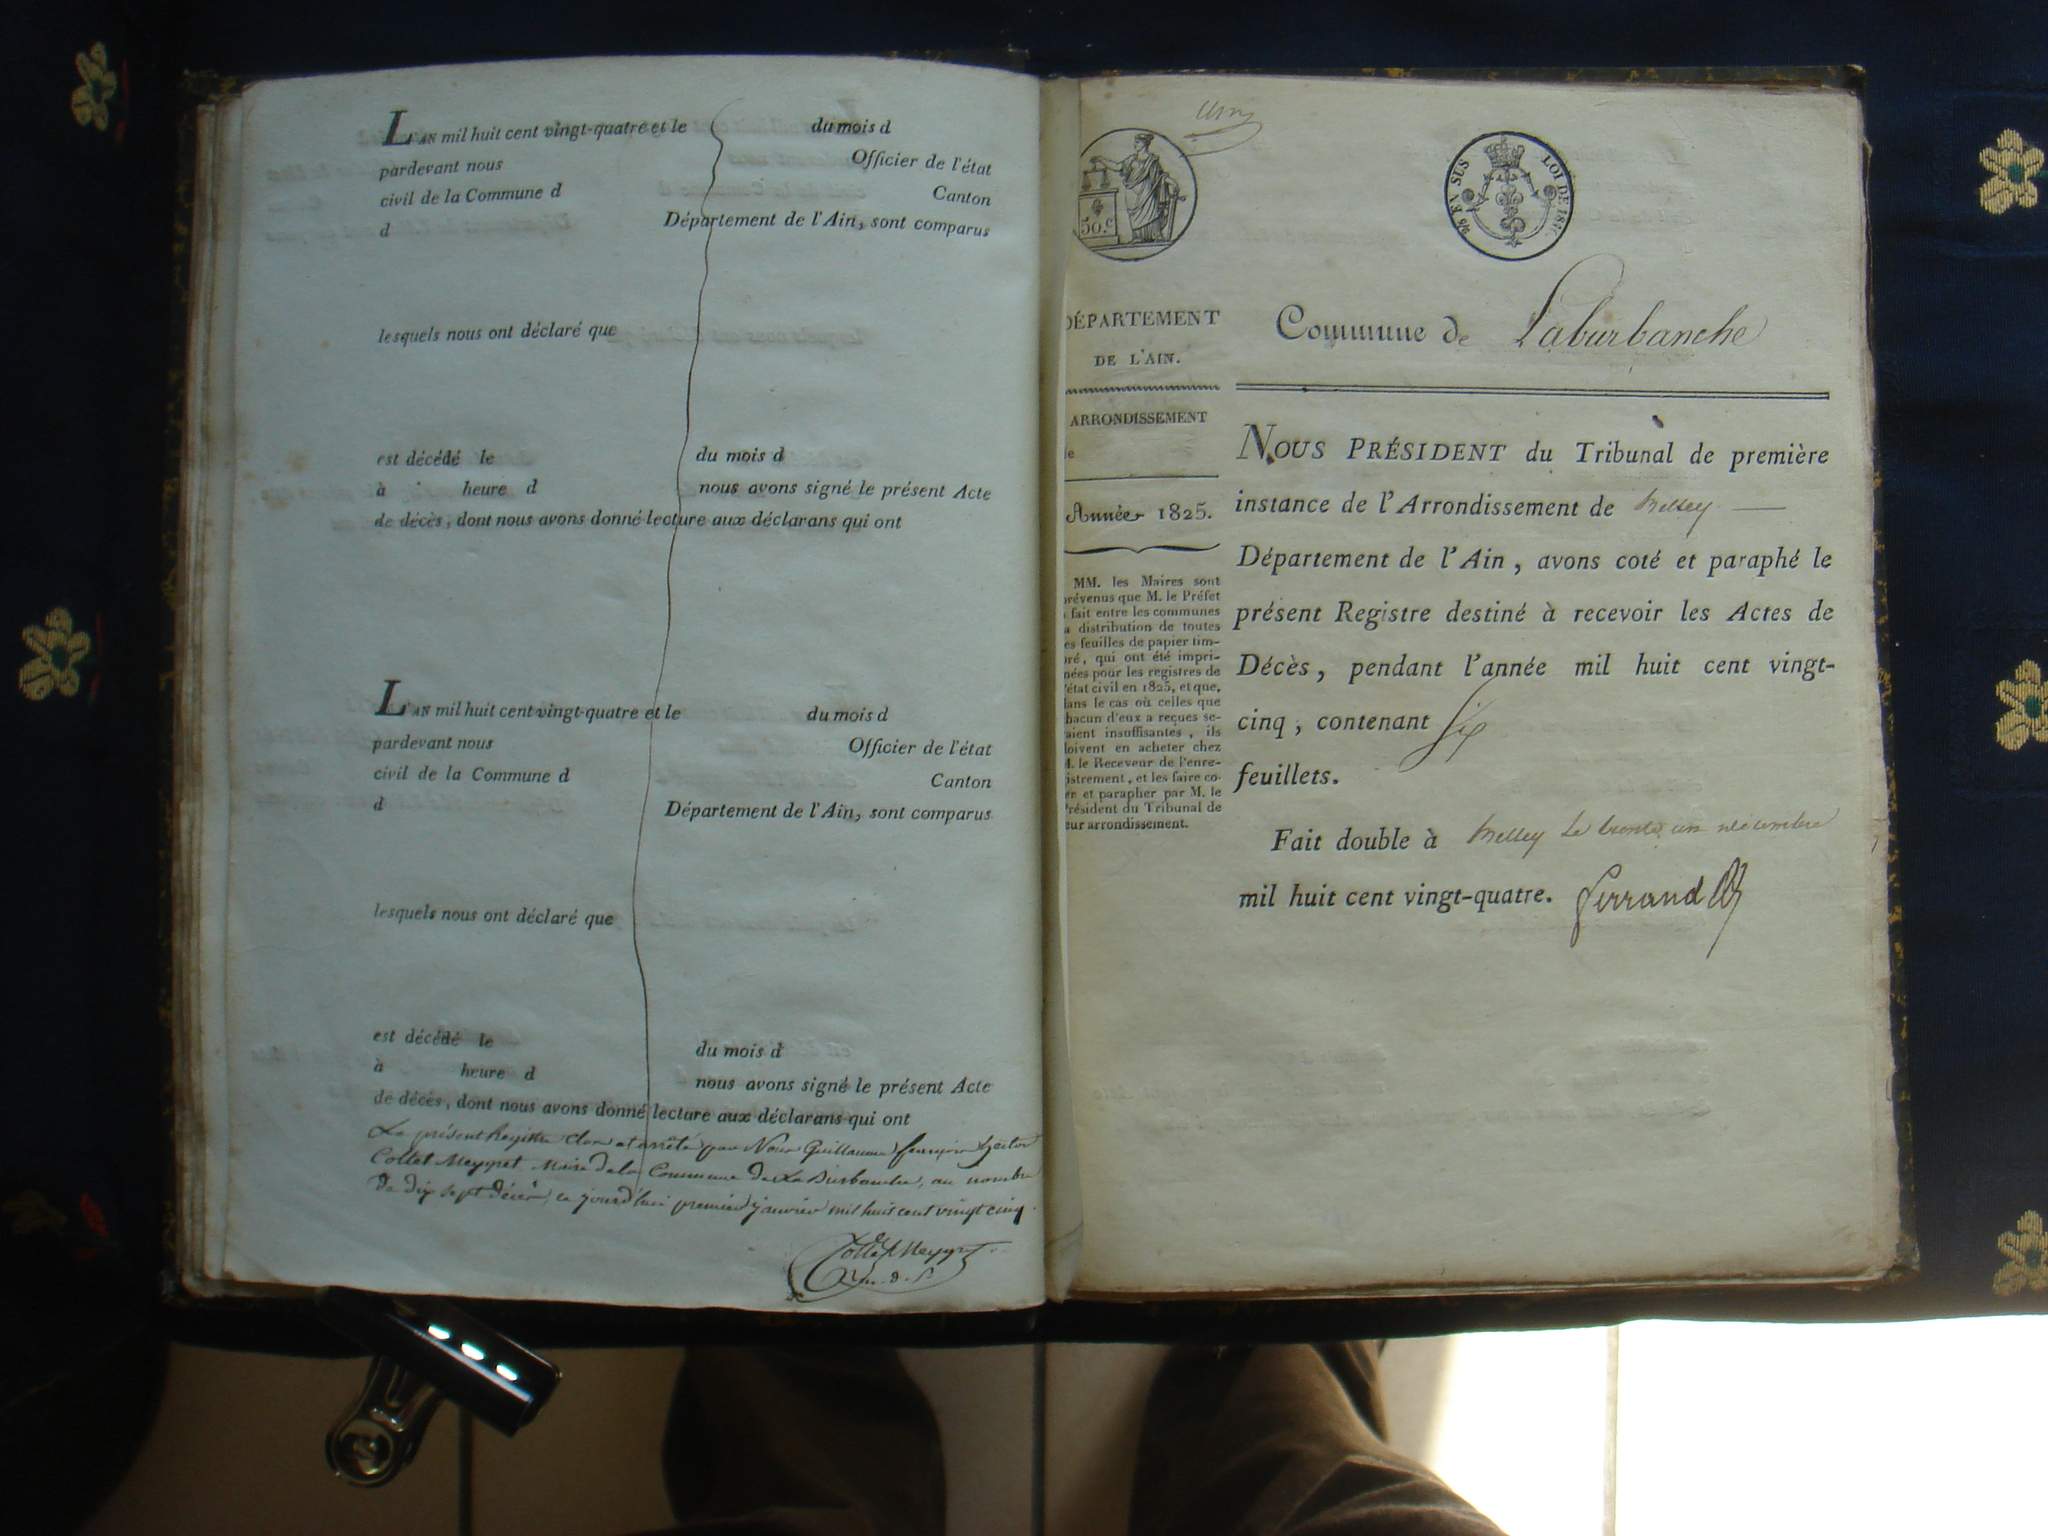 L'AN mil huit cent vingt-quatre et le du mois d
pardevant nous Officier de l'état
civil de la Commune d Canton
d Département de l'Ain, sont comparus
lesquels nous ont déclaré que
est décédé le du mois d
à heure d nous avons signé le présent Acte
de décès, dont nous avons donné lecture aux déclarans qui ont
L'AN mil huit cent vingt-quatre et le du mois d
pardevant nous Officier de l'état
civil de la Commune d Canton
d Département de l'Ain, sont comparus
lesquels nous ont déclaré que
est décédé le du mois d
à heure d nous avons signé le présent Acte
de décès, dont nous avons donné lecture aux déclarans qui ont
Le présent Registre clos et arrêté par Nous Guillaume françois hector
Collet Meygret Maire de la Commune de La Burbanche, au nombre
de dix sept décès, ce jourd'hui premier janvier mil huit cent vingt cinq
Collet Meygret
50.c
EN SUS LOI DE
DÉPARTEMENT
DE L'AIN.
ARRONDISSEMENT
Année 1825.
MM. les Maires sont
prévenus que M. le Préfet
a fait entre les communes
la distribution de toutes
les feuilles de papier tim-
bré, qui ont été impri-
mées pour les registres de
l'état civil en 1825, et que,
dans le cas où celles que
chacun d'eux a reçues se-
raient insuffisantes, ils
doivent en acheter chez
M. le Receveur de l'enre-
gistrement, et les faire co-
ter et parapher par M. le
Président du Tribunal de
leur arrondissement.
Commune de Laburbanche
NOUS PRÉSIDENT du Tribunal de première
instance de l'Arrondissement de Belley
Département de l'Ain, avons coté et paraphé le
présent Registre destiné à recevoir les Actes de
Décès, pendant l'année mil huit cent vingt-
cinq, contenant Six
feuillets.
Fait double à Belley Le trente un décembre
mil huit cent vingt-quatre. Ferrand